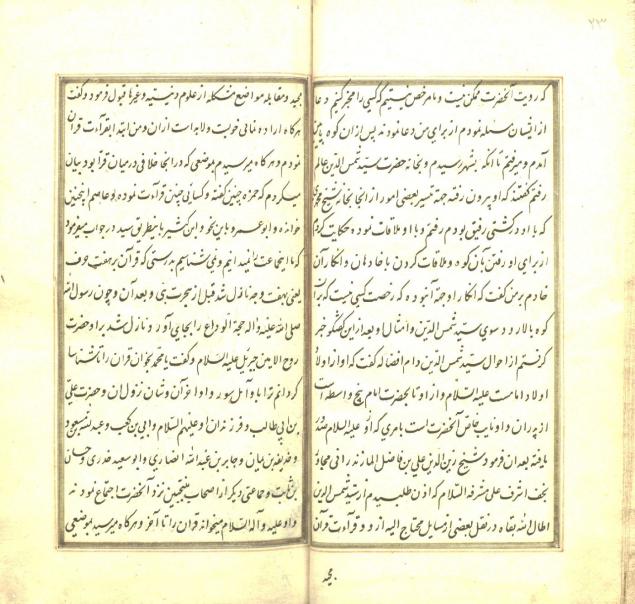 ۲۳
که رویت آنحضرت ممکن نیست و ما مرخص نیستیم که کسی را مخبر کنیم دعا
از ایشان مسئله نمودم از برای من دعا نمودند پس از ان کوه پایین
آمدم و میرفتم تا آنکه بشهر رسیدم و بخانه حضرت سید شمس الدین عالم
رفتم گفتند که او بیرون رفته جهة تمشیر بعضی امور از انجا بخانه شیخ محمد
که با او در کشتی رفیق بودم رفتم و با او ملاقات نموده حکایت کردم
از برای او رفتن بآن کوه و ملاقات کردن با خادمان و انکار آن
خادم بر من گفت که انکار او جهة آنبوده که رخصت کسی نیست که بران
کوه بالا رود سوی سید شمس الدین و امثال او بعد از این گفتگو خبر
گرفتم از احوال سید شمس الدین دام افضاله گفت که او از اولاد
اولاد امامست علیه السلام و از او تا بحضرت امام پنج واسطه است
از پدران و او نایب خاص آنحضرت است بامری که از او علیه السلام صدور
یافته بعد ان فرمود شیخ زین الدین علی بن فاضل المازندرانی مجاور
نجف اشرف علی مشرفه السلام که اذن طلبیدم از سید شمس الدین
اطال الله بقاه در نقل بعضی از مسایل محتاج الیه از او و قراءت قرآن
مجید
مجید و مقابله مواضع مشکله از علوم دینیه و غیرها قبول فرمود و گفت
هرگاه اراده نمائی خوبست ولابد است از ان و من ابتدا بقراءت قرآن
نمودم و هرگاه میرسیدم بموضعی که در انجا خلافی در میان قرا بود بیان
میکردم که حمزه چنین گفته و کسائی چنین قراءت نموده و عاصم اینچنین
خوانده و ابو عمرو باین نحو و ابن کثیر باینطریق سید در جواب میفرمود
که ما اینجماعت را نمیدانیم و نمی شناسیم بدرستی که قرآن بر هفت حرف
یعنی بهفت وجه نازل شد قبل از هجرت نبی و بعد آن و چون رسول الله
صلی الله علیه و اله حجة الوداع را بجای آورد نازل شد بر او حضرت
روح الامین جبرئیل علیه السلام و گفت یا محمد بخوان قران را تا شناسا
گردانم ترا باوایل سور و اواخر آن و شان نزول ان و حضرت علی
بن ابی طالب و فرزندان او علیهم السلام و ابی بن کعب و عبدالله بن مسعود
و حذیفه بن یمان و جابر بن عبدالله انصاری و ابو سعید خدری و حسان
بن ثابت و جماعتی دیگر از اصحاب منتجبین نزد آنحضرت اجتماع نمودند
و او علیه و آله السلام میخواند قران را تا آخر و هرگاه میرسید بموضعی